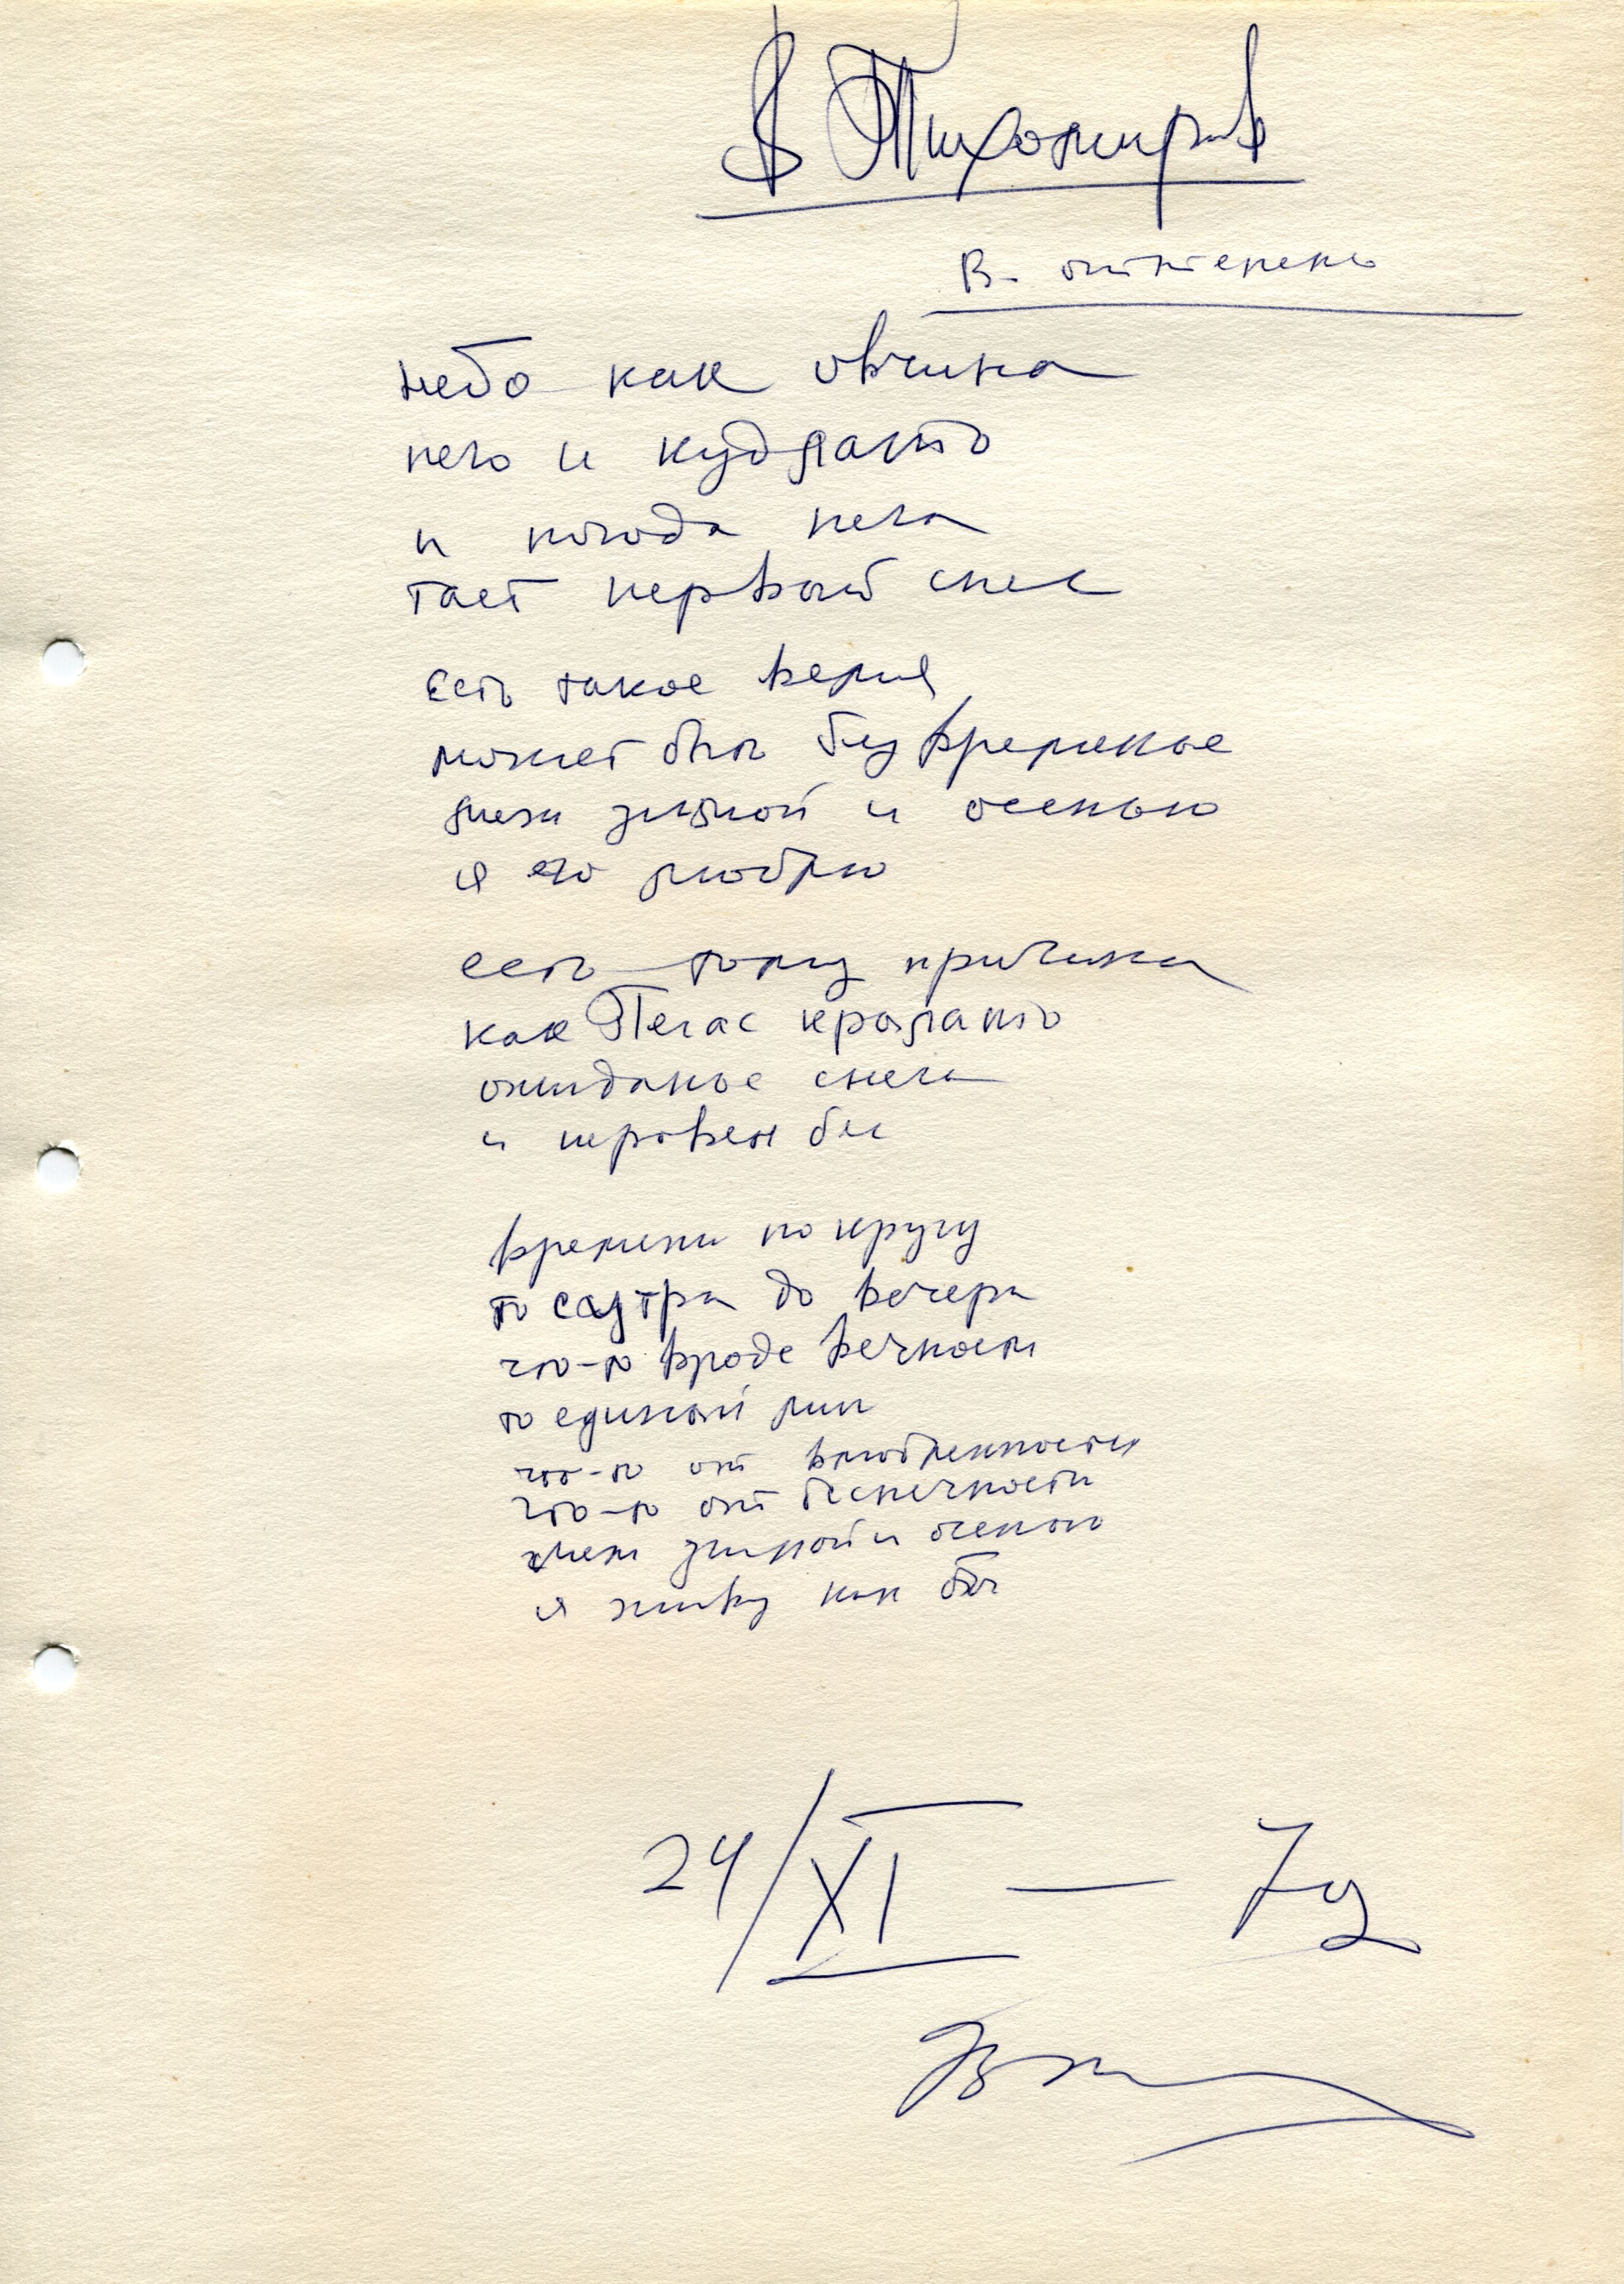 В Тихомиров
В оттепель
небо как овчина
пего и кудлато
и погода пега
тает первый снег
есть такое время
может быть безвременье
меж зимой и осенью
я его люблю
есть тому причина
как Пегас крылато
ожиданье снега
и неровен бег
времени по кругу
то с утра до вечера
что-то вроде вечности
то единый миг
что-то от влюбленности
что-то от беспечности
меж зимой и осенью
я живу как бог
24/XI — 7